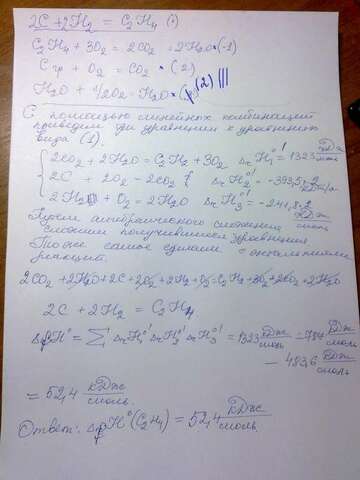 2C + 2H₂ = C₂H₄ (1)
C₂H₄ + 3O₂ = 2CO₂ + 2H₂O × (-1)
C гр + O₂ = CO₂ × (2)
H₂O + 1/2O₂ = H₂O × (2)
С помощью линейных комбинаций
приведём три уравнения к уравнению
вида (1).
2CO₂ + 2H₂O = C₂H₄ + 3O₂ ΔrH₁⁰' = 1323 кДж/моль
2C + 2O₂ = 2CO₂ ΔrH₂⁰' = -393,5·2 кДж/м
2H₂ + O₂ = 2H₂O ΔrH₃⁰' = -241,8·2 кДж/моль
Путём алгебраического сложения
сложим получившиеся уравнения
То же самое сделаем с энтальпиями
реакций.
2CO₂ + 2H₂O + 2C + 2O₂ + 2H₂ + O₂ = C₂H₄ + 3O₂ + 2CO₂ + 2H₂O
2C + 2H₂ = C₂H₄
ΔfH⁰ = ∑ ΔrH₁⁰' ΔrH₂⁰' ΔrH₃⁰' = 1323 кДж/моль - 787 кДж/моль
- 483,6 кДж/моль
= 52,4 кДж/моль.
Ответ: ΔfH⁰(C₂H₄) = 52,4 кДж/моль.